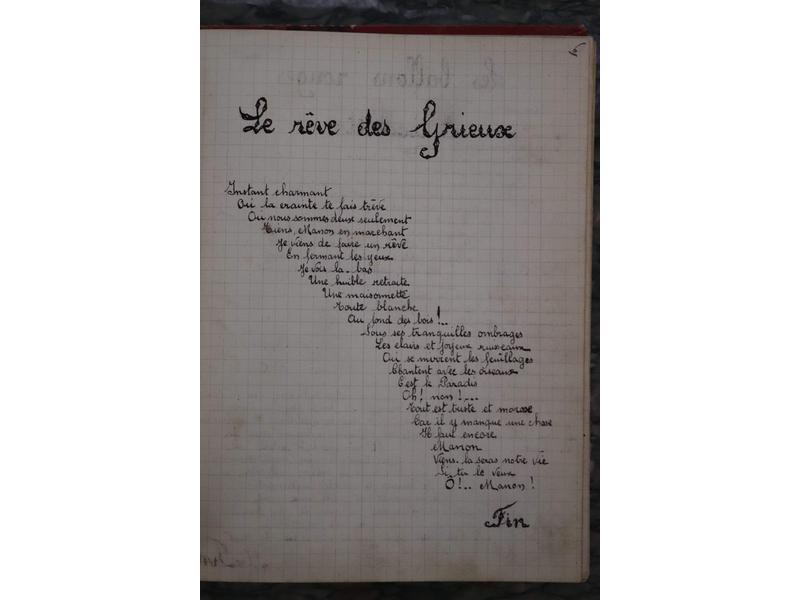 Le rêve des Grieux
Instant charmant
Où la crainte te fais trêve
Ou nous sommes deux seulement
Tiens, Manon en marchant
Je viens de faire un rêve
En fermant les yeux
Je vois la-bas
Une huible retraite
Une maisonnette
Toute blanche
Au fond des bois !..
Sous ses tranquilles ombrages
Les clairs et joyeux ruisseaux
Où se mirrent les feuillages
Chantent avec les oiseaux
C'est le Paradis
Oh ! non !...
Tout est triste et morose
Car il y manque une chose
Il faut encore
Manon
Viens. la seras notre vie
Si tu le veux
Ô !.. Manon !
Fin